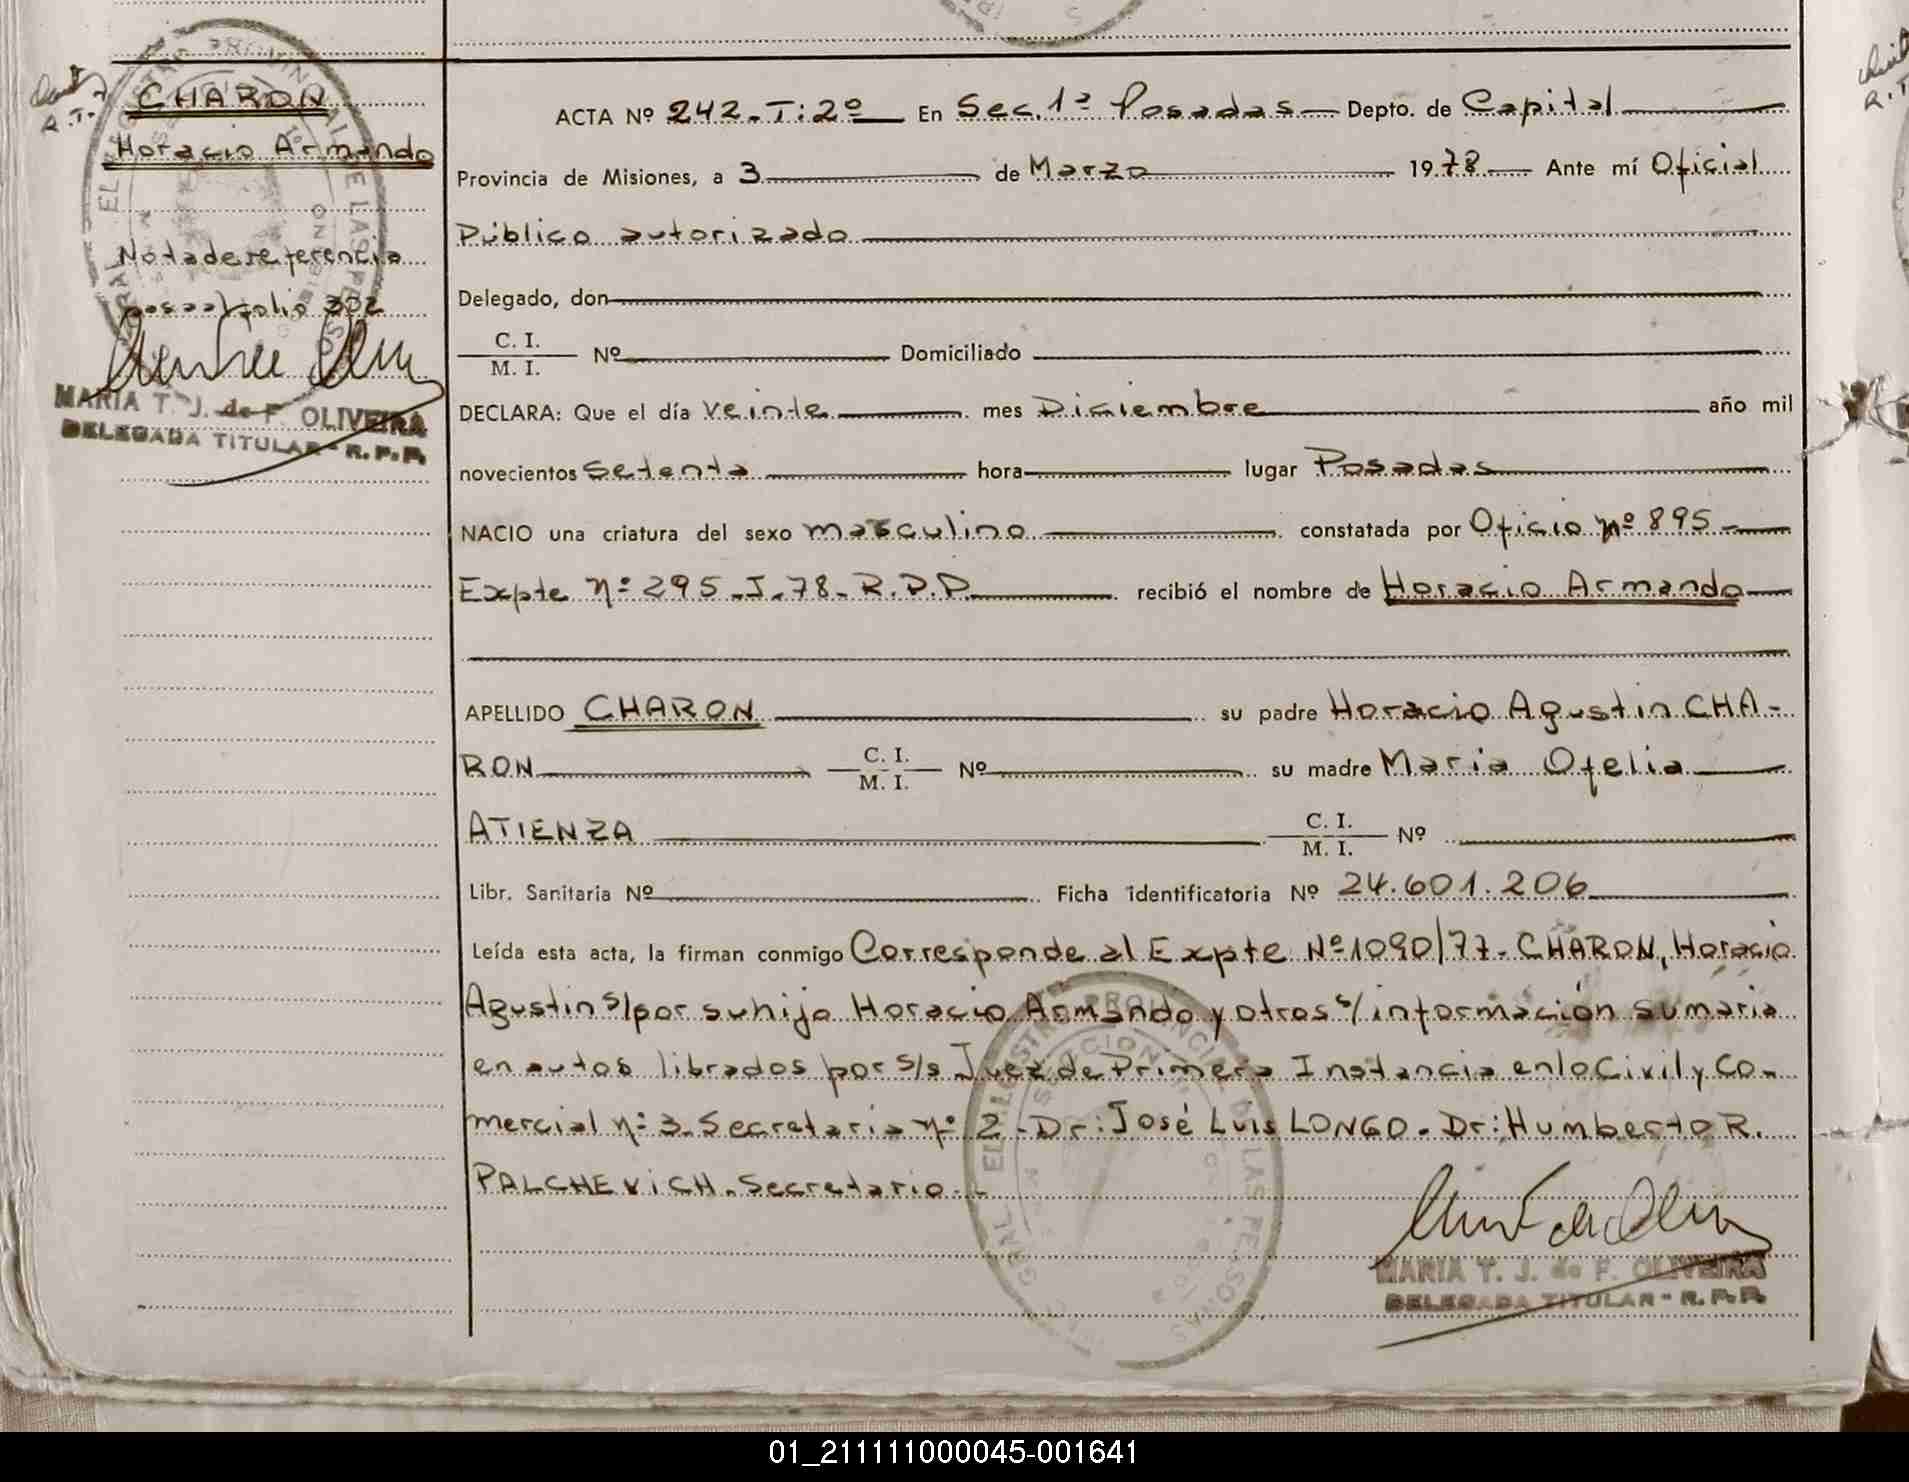 CHARON
Horacio Armando
Nota de referencia
pasa al folio 302
MARIA T. J. de F. OLIVEIRA
DELEGADA TITULAR - R. P. P.
ACTA Nº 242 - T: 2º En Sec. 1ª Posadas Depto. de Capital
Provincia de Misiones, a 3 de Marzo 1978 Ante mí Oficial
Público autorizado
Delegado, don
C. I.
M. I.
Nº Domiciliado
DECLARA: Que el día veinte mes Diciembre año mil
novecientos setenta hora lugar Posadas
NACIO una criatura del sexo masculino constatada por Oficio nº 895 -
Expte Nº 295 - J - 78 - R.P.P. recibió el nombre de Horacio Armando
APELLIDO CHARON su padre Horacio Agustin CHA-
RON C. I. M. I. Nº su madre Maria Ofelia
ATIENZA C. I. M. I. Nº
Libr. Sanitaria Nº Ficha identificatoria Nº 24.601.206
Leída esta acta, la firman conmigo Corresponde al Expte Nº 1090/77 - CHARON, Horacio
Agustin s/por su hijo Horacio Armando y otros s/información sumaria
en autos librados por S/S Juez de Primera Instancia en lo Civil y Co-
mercial nº 3 - Secretaria nº 2 - Dr: José Luis LONGO - Dr: Humberto R.
PALCHEVICH - Secretario -
MARIA T. J. de F. OLIVEIRA
DELEGADA TITULAR - R. P. P.
01_211111000045-001641